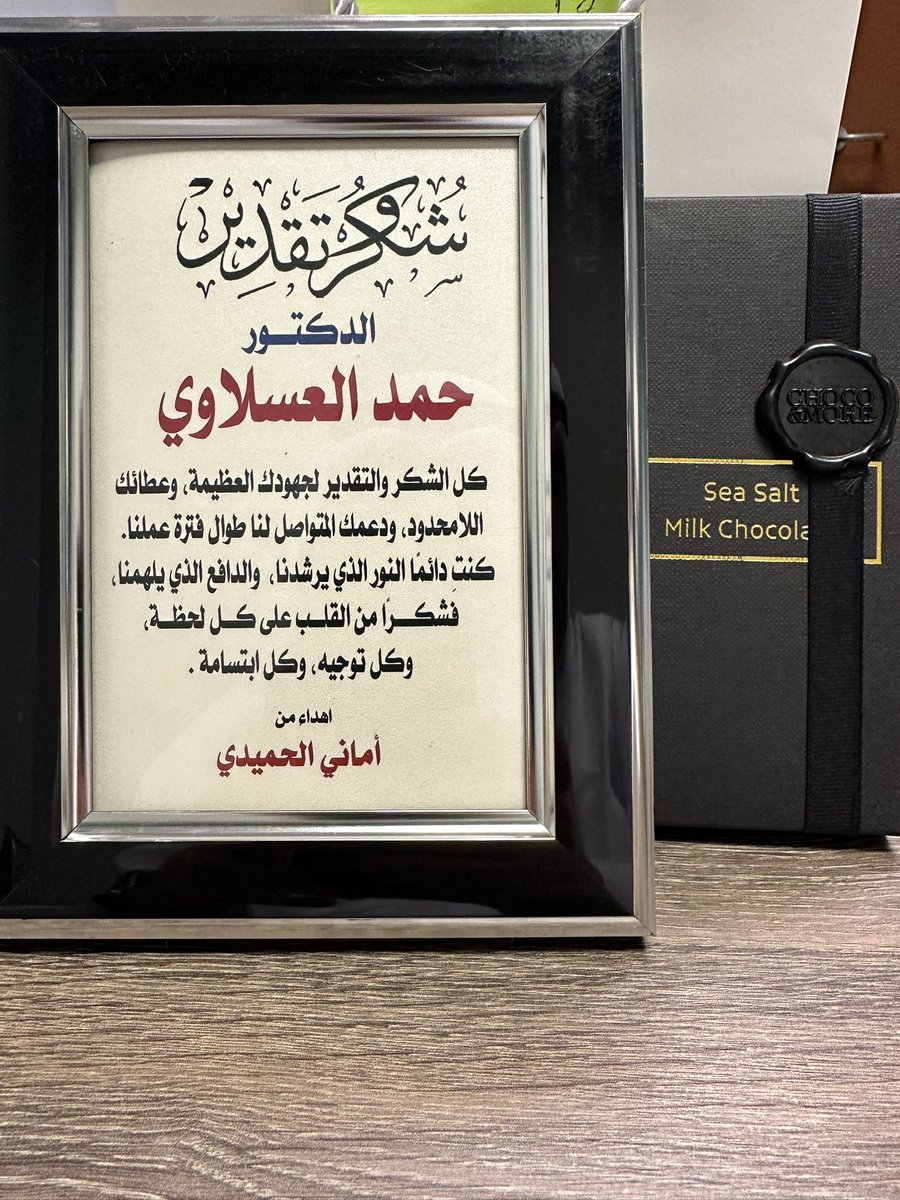 شكر وتقدير
الدكتــور
حمد العسلاوي
كل الشكر والتقدير لجهودك العظيمة، وعطائك
اللامحدود، ودعمك المتواصل لنا طوال فترة عملنا.
كنت دائمًا النور الذي يرشدنا، والدافع الذي يلهمنا،
فشكــرًا من القلب على كل لحظة،
وكل توجيه، وكل ابتسامة .
اهداء من
أماني الحميدي
CHOCO
&MORE
Sea Salt
Milk